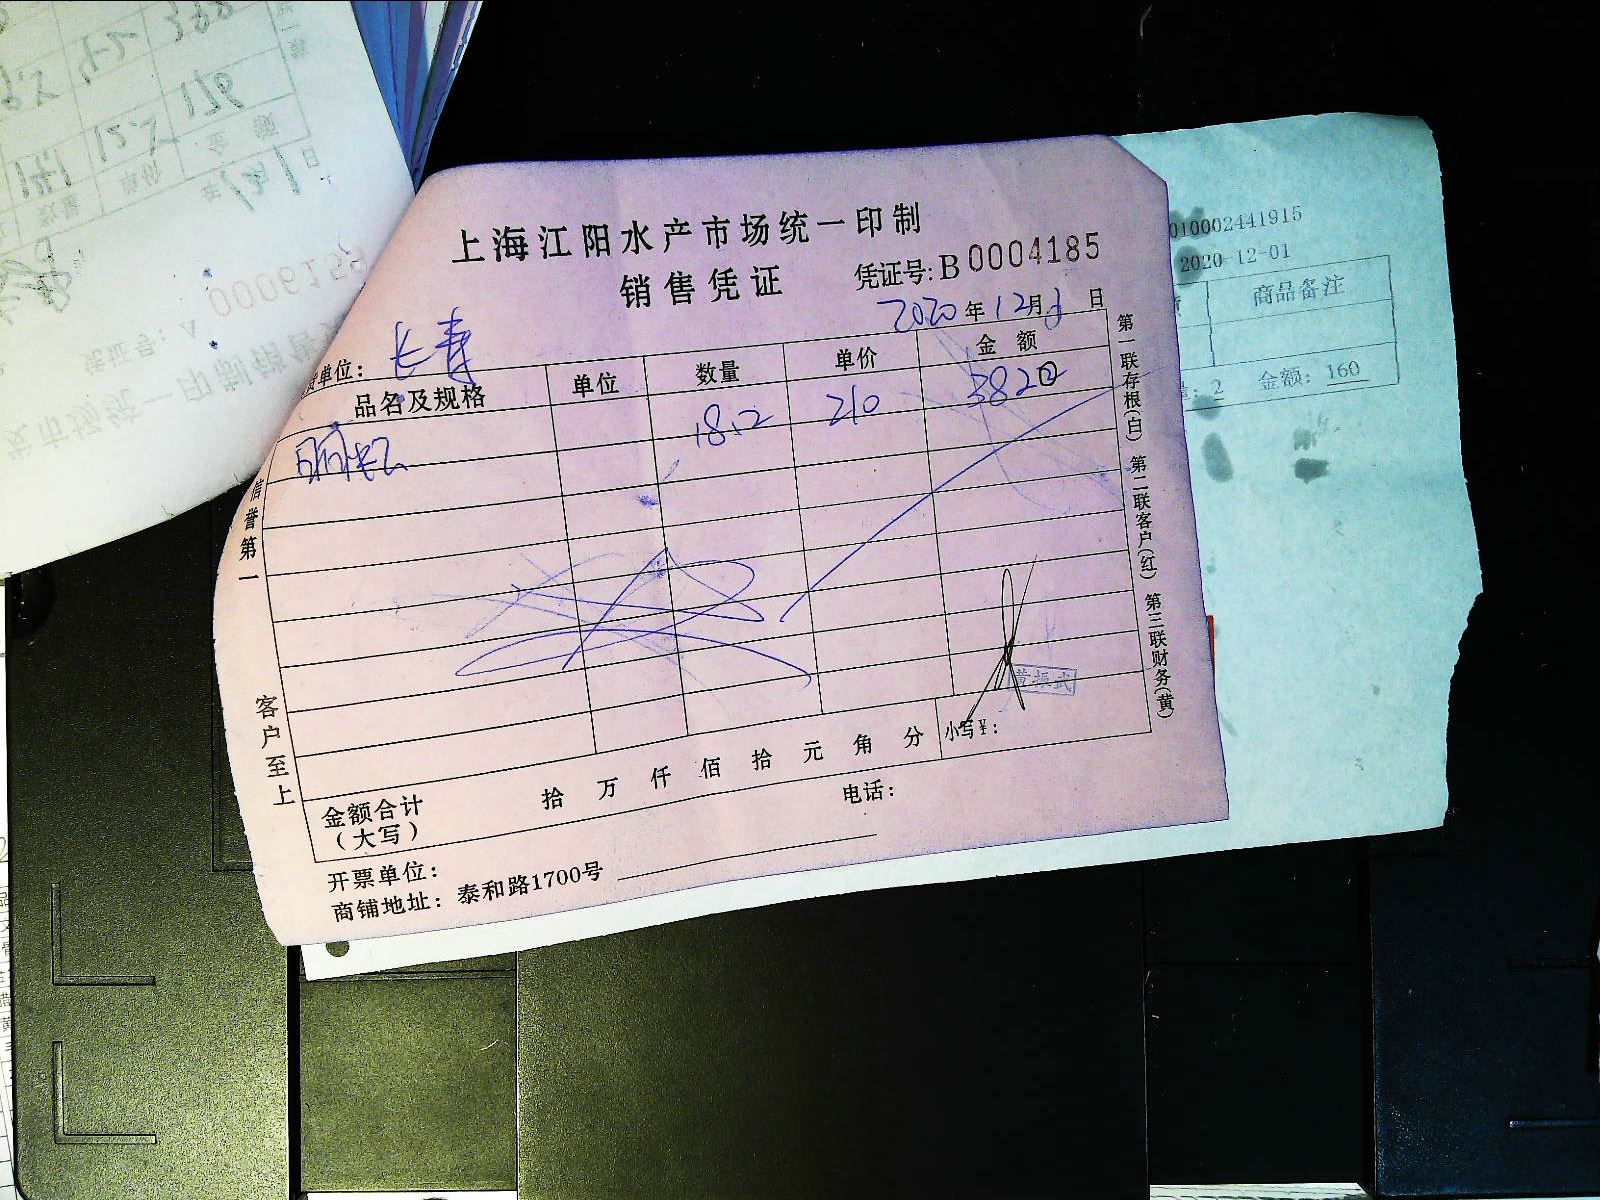 上海江阳水产市场统一印制
销售凭证
凭证号: B 0004185
2020年12月 日
货单位: 长寿
品名及规格 单位 数量 单价 金额
18.2 210 3820
信誉第一
客户至上
第一联存根(白) 第二联客户(红) 第三联财务(黄)
金额合计(大写) 拾 万 仟 佰 拾 元 角 分 小写¥:
开票单位: 电话:
商铺地址: 泰和路1700号
010002441915
2020-12-01
商品备注
: 2 金额: 160
0006155
凭证号: A